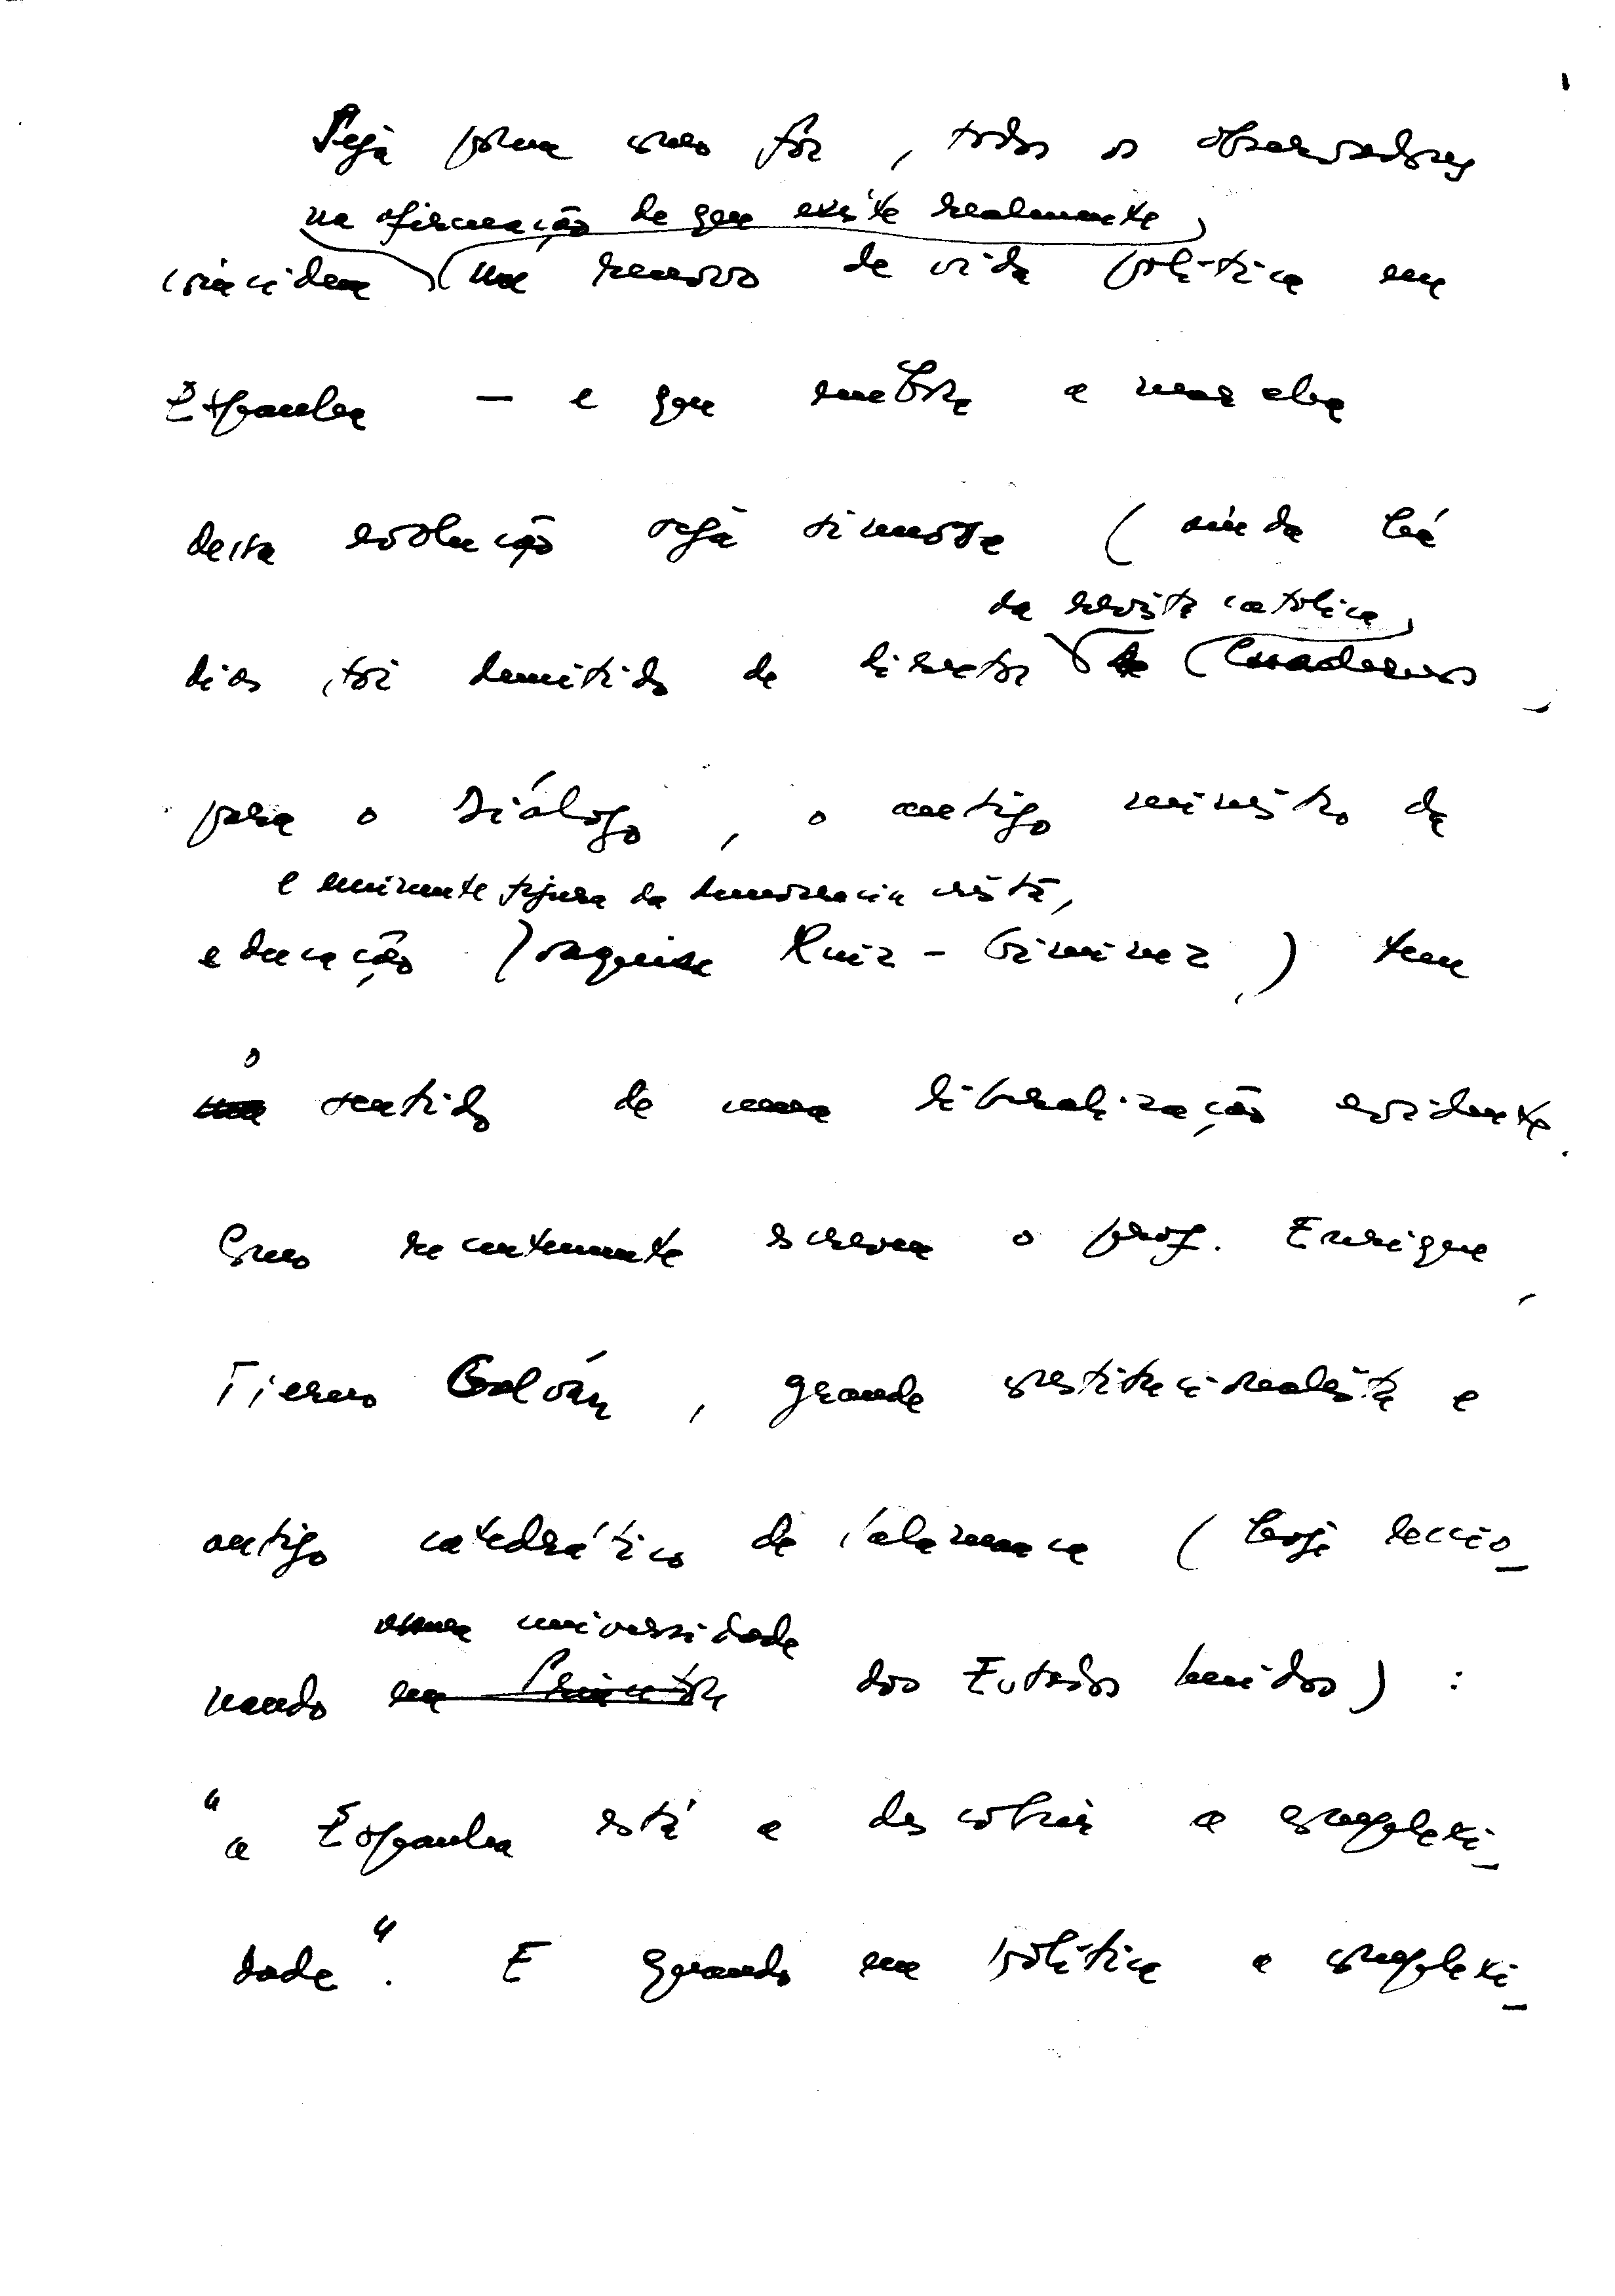 Seja como for, todos os observadores
na afirmação de que existe realmente
coincidem um renovo de vida política em
Espanha — e que embora a marcha
desta evolução seja sinuosa (ainda há
da revista católica
dias foi demitido de director de Cuadernos
para o Diálogo, o antigo ministro da
e eminente figura da democracia cristã,
educação Joaquim Ruiz-Giminez,) tem
o
um sentido de uma liberalização evidente.
Como recentemente escreveu o prof. Enrique
Tierno Galván, grande constitucionalista e
antigo catedrático de Salamanca (hoje leccio-
numa universidade
nando em dos Estados Unidos) :
"a Espanha está a descobrir a complexi-
dade". E quando em política a complexi-